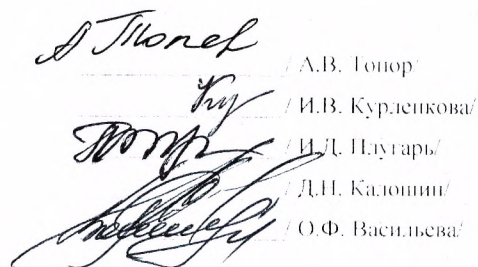 А Топор / А.В. Топор/
/ И.В. Курленкова/
/ И.Д. Плугарь/
/ Д.Н. Калошин/
/ О.Ф. Васильева/